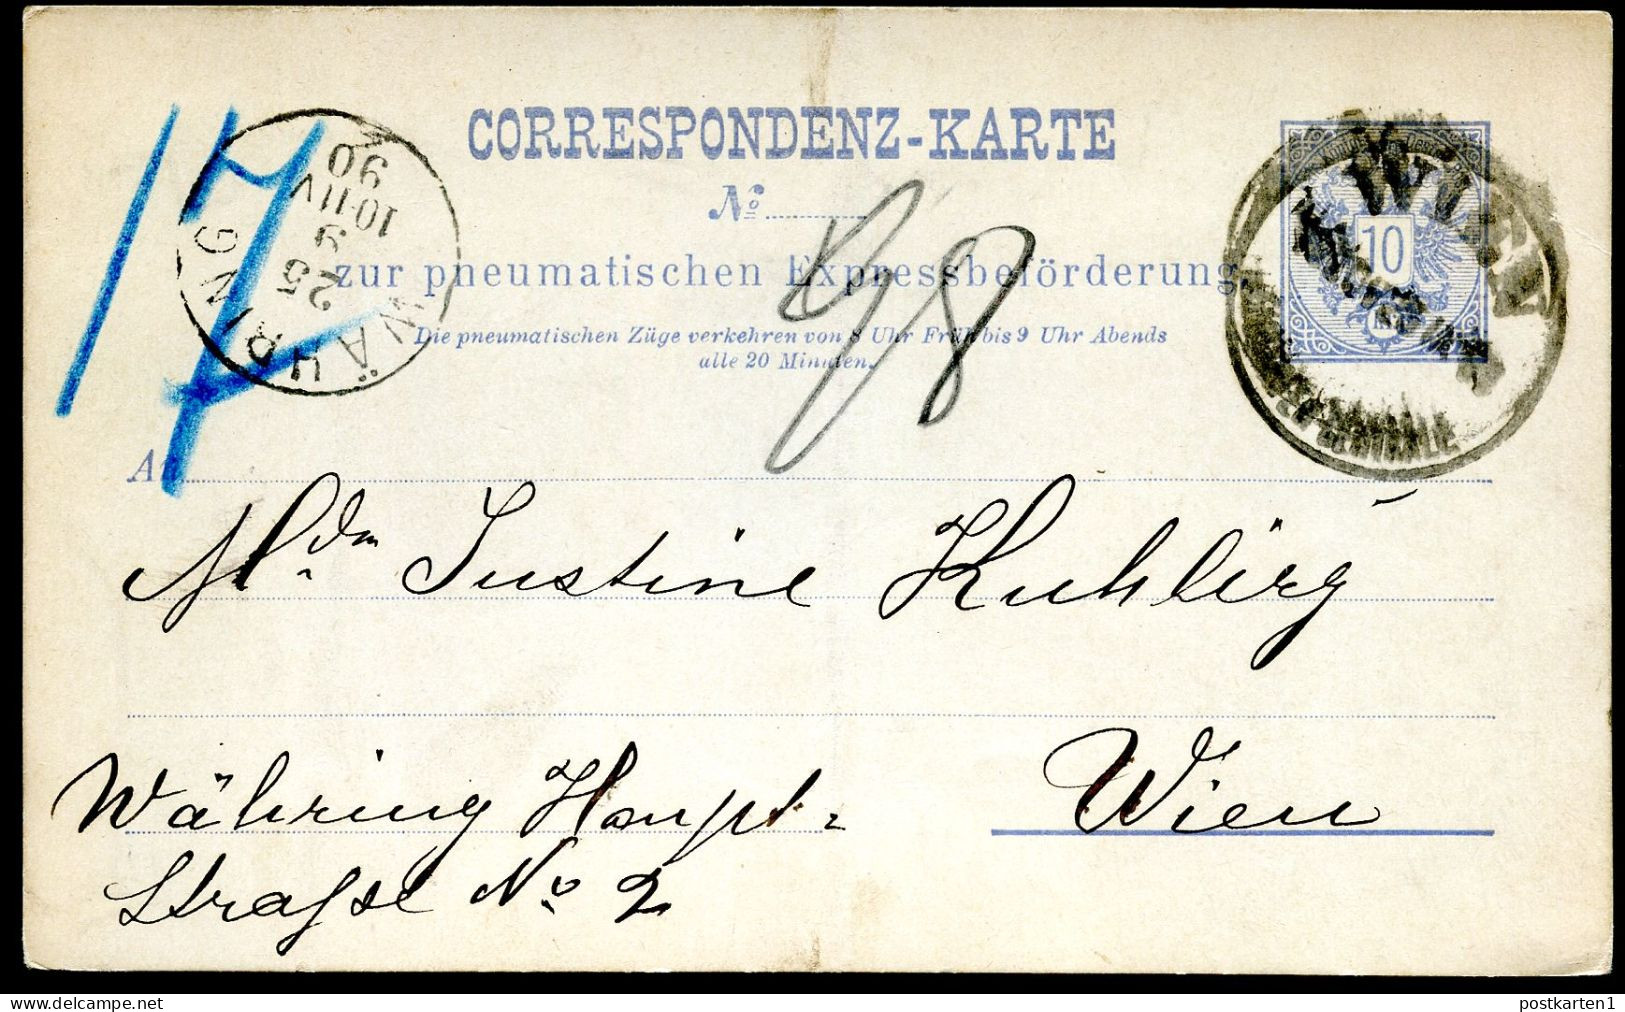 CORRESPONDENZ-KARTE
No
zur pneumatischen Expressbeförderung.
Die pneumatischen Züge verkehren von 8 Uhr Früh bis 9 Uhr Abends
alle 20 Minuten.
17
98
WÄHRING
25
9
10-11V
90
WIEN
10
An
Mdm Justine Kuhlirg
Währing Haupt-
Wien
Strasse No 2
www.delcampe.net
postkarten1